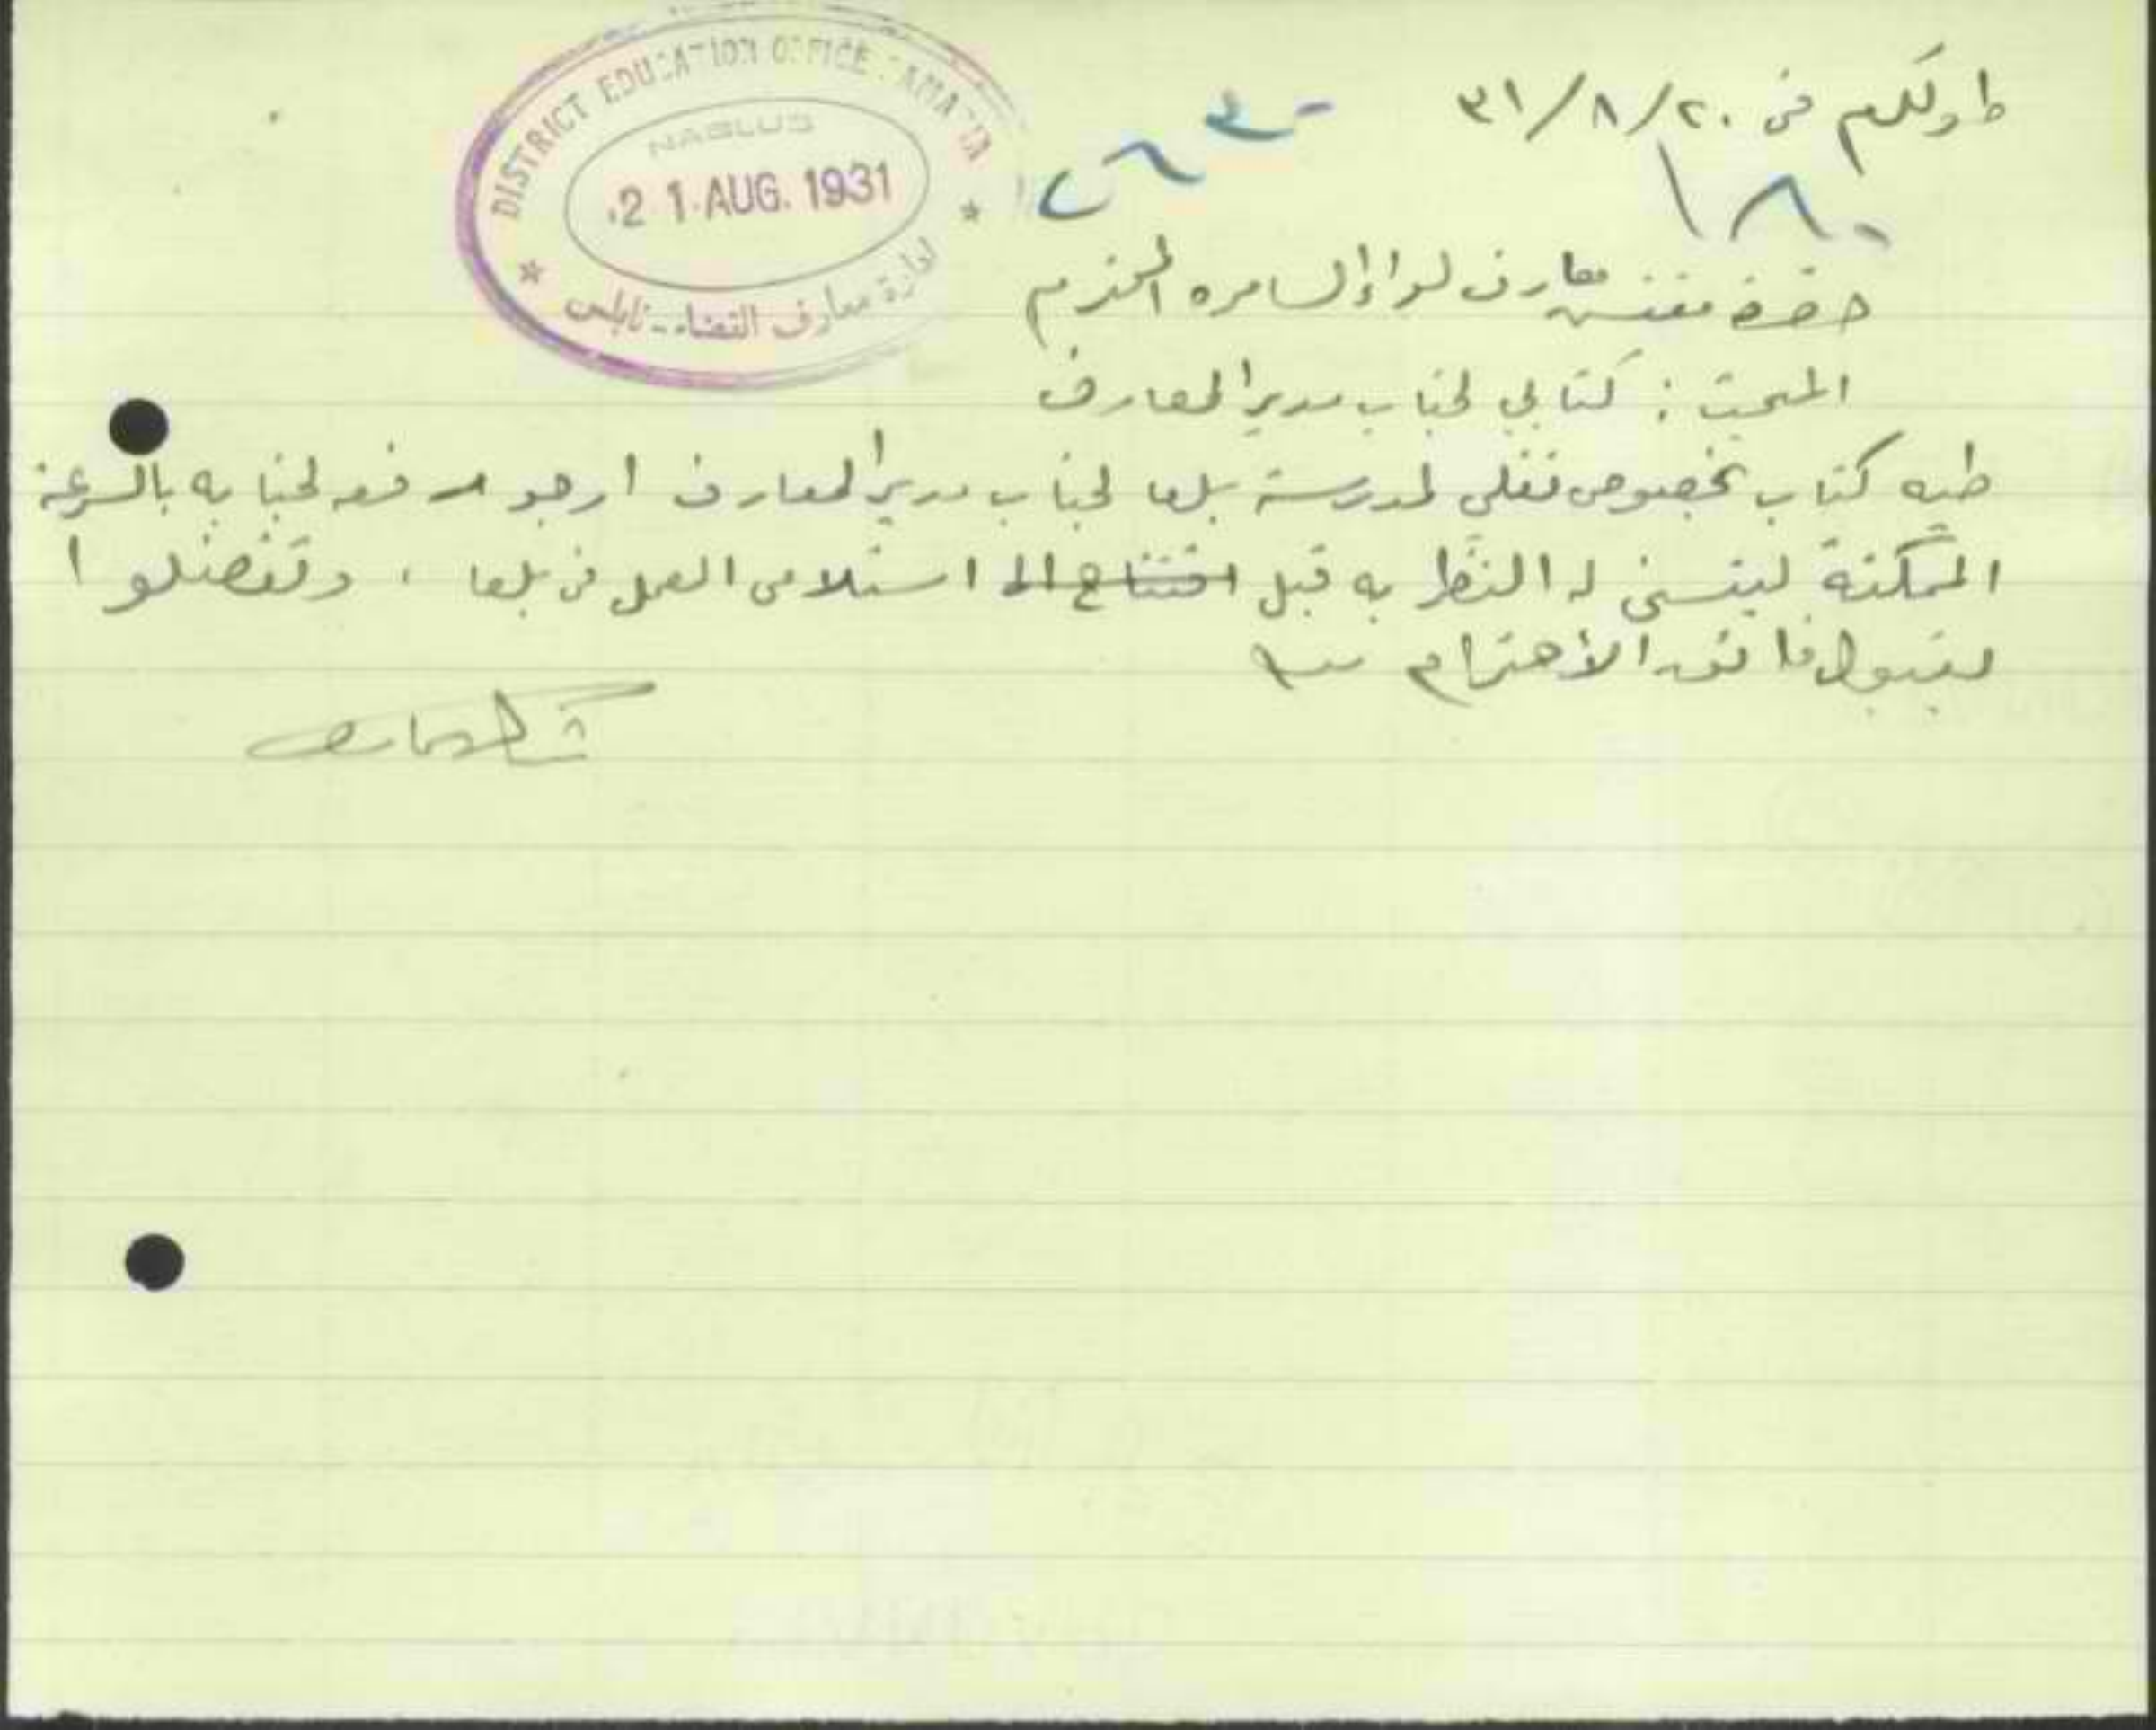 DISTRICT EDUCATION OFFICE SAMARIA
NABLUS
21 AUG. 1931
ادارة معارف القضاء - نابلس
طولكرم في ٢٠/٨/٣١
حضرة مفتش معارف لواء السامره المحترم
المبحث : كتابي لجناب مدير المعارف
طيه كتاب بخصوص نقلي لمدرسة بلعا لجناب مدير المعارف ارجو رفعه لجنابه بالسرعة
الممكنة ليتسنى له النظر به قبل افتتاح ال استلامي العمل في بلعا ، وتفضلوا
بقبول فائق الاحترام